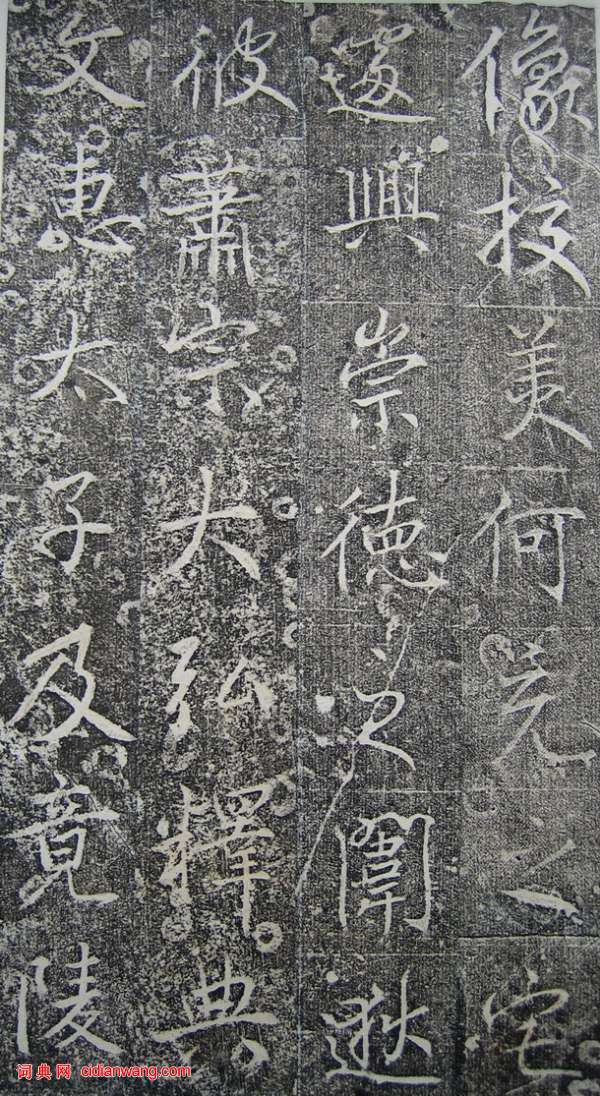 像挍美何充之宅
遽興崇德之闈逖
彼蕭宗大弘釋典
文惠太子及竟陵
词典网 cidianwang.com